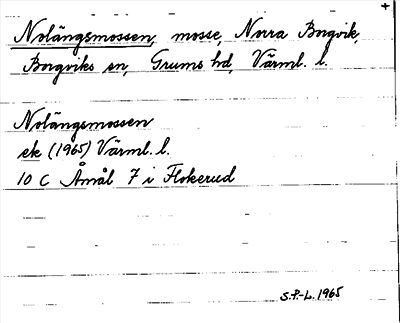 +
Nolängsmossen, mosse, Norra Borgvik,
Borgviks sn, Grums hd, Värml. l.
Nolängsmossen
ek (1965) Värml. l.
10 C Åmål 7 i Flokerud
S.P.-L. 1965